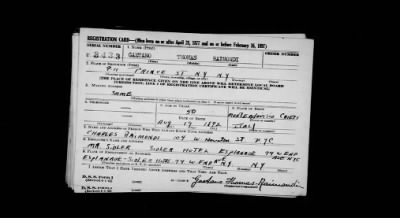 REGISTRATION CARD—(Men born on or after April 28, 1877 and on or before February 16, 1897)
SERIAL NUMBER 1. NAME (Print) ORDER NUMBER
U 3433 GAETANO THOMAS RAIMONDI
(First) (Middle) (Last)
2. PLACE OF RESIDENCE (Print)
PRINCE ST. N.Y N.Y
(Number and street) (Town, township, village, or city) (County) (State)
[THE PLACE OF RESIDENCE GIVEN ON THE LINE ABOVE WILL DETERMINE LOCAL BOARD
JURISDICTION; LINE 2 OF REGISTRATION CERTIFICATE WILL BE IDENTICAL]
3. MAILING ADDRESS
SAME
4. TELEPHONE 5. AGE IN YEARS 6. PLACE OF BIRTH
50
DATE OF BIRTH
AUG 17 1892 ITALY
7. NAME AND ADDRESS OF PERSON WHO WILL ALWAYS KNOW YOUR ADDRESS
CHARLES RAIMONDI 104 W. Houston ST NYC
8. EMPLOYER'S NAME AND ADDRESS
MR. SIDLER SIDLER HOTEL ESPLANADE 74 W END AVE NYC
9. PLACE OF EMPLOYMENT OR BUSINESS
ESPLANADE-SIDLER HOTEL 74 W END AVE N.Y N.Y
I AFFIRM THAT I HAVE VERIFIED ABOVE ANSWERS AND THAT THEY ARE TRUE.
D. S. S. Form 1
Gaetano Thomas Raimondi